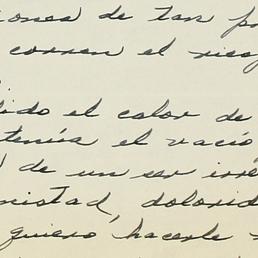 iones de tan pr
corren el riesg
dido el calor de
tenía el vació
de un ser irre
mistad, dolorid
quiero, hacerle